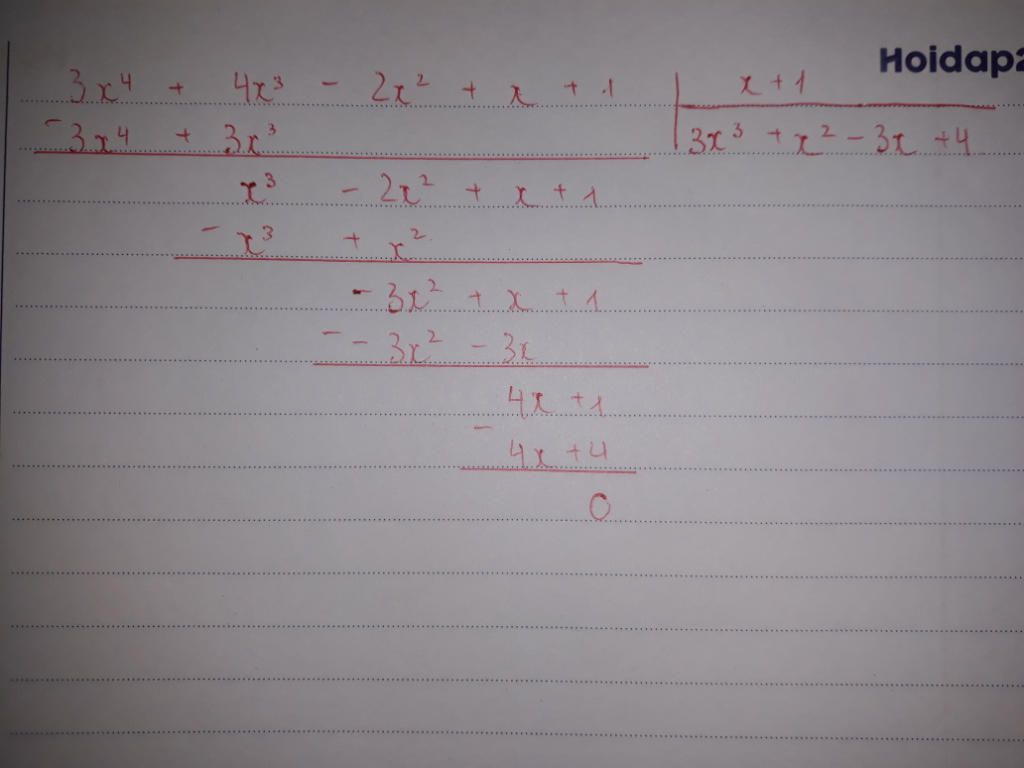 Hoidap2
3x⁴ + 4x³ - 2x² + x + 1 | x + 1
- 3x⁴ + 3x³ | 3x³ + x² - 3x + 4
x³ - 2x² + x + 1
- x³ + x²
- 3x² + x + 1
- - 3x² - 3x
4x + 1
-
4x + 4
0